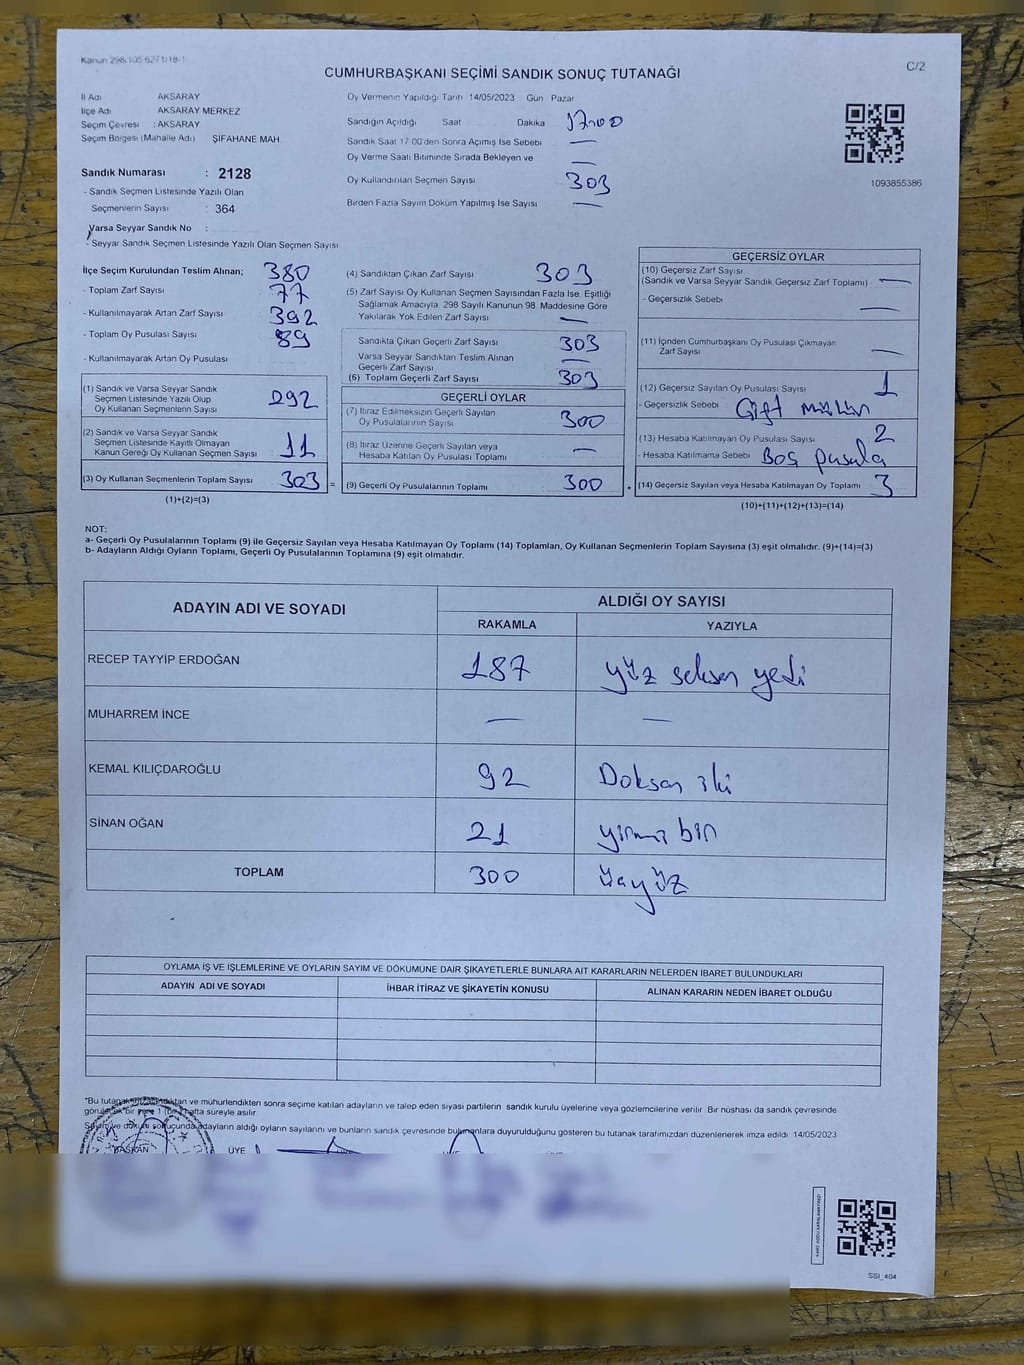 Kanun 298/105 6271/18-1
C/2
CUMHURBAŞKANI SEÇİMİ SANDIK SONUÇ TUTANAĞI
İl Adı : AKSARAY
İlçe Adı AKSARAY MERKEZ
Seçim Çevresi : AKSARAY
Seçim Bölgesi (Mahalle Adı) ŞİFAHANE MAH
Sandık Numarası : 2128
- Sandık Seçmen Listesinde Yazılı Olan
Seçmenlerin Sayısı : 364
Varsa Seyyar Sandık No :
- Seyyar Sandık Seçmen Listesinde Yazılı Olan Seçmen Sayısı
Oy Vermenin Yapıldığı Tarih 14/05/2023 Gün Pazar
Sandığın Açıldığı Saat Dakika 17:00
Sandık Saat 17.00'den Sonra Açımış İse Sebebi —
Oy Verme Saati Bitiminde Sırada Bekleyen ve —
Oy Kullandırılan Seçmen Sayısı 303
Birden Fazla Sayım Döküm Yapılmış İse Sayısı —
1093855386
İlçe Seçim Kurulundan Teslim Alınan; 380
- Toplam Zarf Sayısı 77
- Kullanılmayarak Artan Zarf Sayısı 392
- Toplam Oy Pusulası Sayısı 89
- Kullanılmayarak Artan Oy Pusulası
(1) Sandık ve Varsa Seyyar Sandık
Seçmen Listesinde Yazılı Olup
Oy Kullanan Seçmenlerin Sayısı 292
(2) Sandık ve Varsa Seyyar Sandık
Seçmen Listesinde Kayıtlı Olmayan
Kanun Gereği Oy Kullanan Seçmen Sayısı 11
(3) Oy Kullanan Seçmenlerin Toplam Sayısı 303 =
(1)+(2)=(3)
(4) Sandıktan Çıkan Zarf Sayısı 303
(5) Zarf Sayısı Oy Kullanan Seçmen Sayısından Fazla İse, Eşitliği
Sağlamak Amacıyla, 298 Sayılı Kanunun 98. Maddesine Göre
Yakılarak Yok Edilen Zarf Sayısı —
Sandıkta Çıkan Geçerli Zarf Sayısı 303
Varsa Seyyar Sandıktan Teslim Alınan
Geçerli Zarf Sayısı —
(6) Toplam Geçerli Zarf Sayısı 303
GEÇERLİ OYLAR
(7) İtiraz Edilmeksizin Geçerli Sayılan
Oy Pusulalarının Sayısı 300
(8) İtiraz Üzerine Geçerli Sayılan veya
Hesaba Katılan Oy Pusulası Toplamı —
(9) Geçerli Oy Pusulalarının Toplamı 300 +
GEÇERSİZ OYLAR
(10) Geçersiz Zarf Sayısı
(Sandık ve Varsa Seyyar Sandık Geçersiz Zarf Toplamı) —
- Geçersizlik Sebebi —
(11) İçinden Cumhurbaşkanı Oy Pusulası Çıkmayan
Zarf Sayısı —
(12) Geçersiz Sayılan Oy Pusulası Sayısı 1
- Geçersizlik Sebebi Çift mühür
(13) Hesaba Katılmayan Oy Pusulası Sayısı 2
- Hesaba Katılmama Sebebi Boş pusula
(14) Geçersiz Sayılan veya Hesaba Katılmayan Oy Toplamı 3
(10)+(11)+(12)+(13)=(14)
NOT:
a- Geçerli Oy Pusulalarının Toplamı (9) ile Geçersiz Sayılan veya Hesaba Katılmayan Oy Toplamı (14) Toplamları, Oy Kullanan Seçmenlerin Toplam Sayısına (3) eşit olmalıdır. (9)+(14)=(3)
b- Adayların Aldığı Oyların Toplamı, Geçerli Oy Pusulalarının Toplamına (9) eşit olmalıdır.
ADAYIN ADI VE SOYADI
ALDIĞI OY SAYISI
RAKAMLA YAZIYLA
RECEP TAYYİP ERDOĞAN 187 yüz seksen yedi
MUHARREM İNCE — —
KEMAL KILIÇDAROĞLU 92 Doksan iki
SİNAN OĞAN 21 yirmi bir
TOPLAM 300 üçyüz
OYLAMA İŞ VE İŞLEMLERİNE VE OYLARIN SAYIM VE DÖKÜMÜNE DAİR ŞİKAYETLERLE BUNLARA AİT KARARLARIN NELERDEN İBARET BULUNDUKLARI
ADAYIN ADI VE SOYADI İHBAR İTİRAZ VE ŞİKAYETİN KONUSU ALINAN KARARIN NEDEN İBARET OLDUĞU
*Bu tutanak ve mühürlendikten sonra seçime katılan adayların ve talep eden siyasi partilerin sandık kurulu üyelerine veya gözlemcilerine verilir. Bir nüshası da sandık çevresinde
görülecek bir yere 1 (bir) hafta süreyle asılır
Sayım ve döküm sonucunda adayların aldığı oyların sayılarını ve bunların sandık çevresinde bulunanlara duyurulduğunu gösteren bu tutanak tarafımızdan düzenlenerek imza edildi. 14/05/2023
BAŞKAN ÜYE
SSI_404